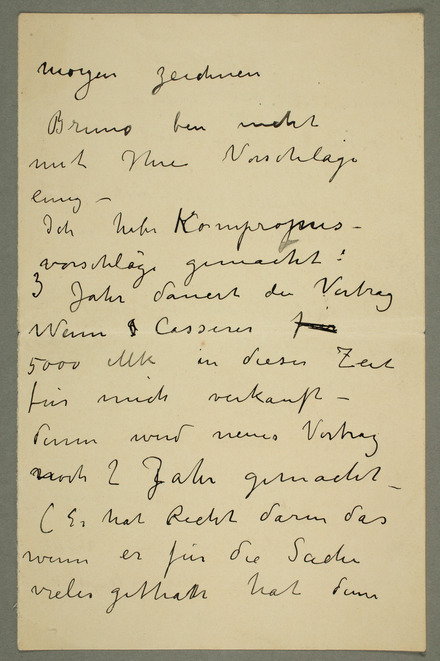 morgen zeichnen
Bruno ben nicht
mit Ihre Vorschläge
einig –
Ich habe Kompromis-
vorschläge gemacht:
3 Jahr dauert der Vertrag
Wenn Casserer
5000 Mk in dieser Zeit
für mich verkauft –
denn werd neues Vertrag
noch 2 Jahr gemacht –
(Er hat Recht darin das
wenn er für die Sache
vieles gethan hat denn